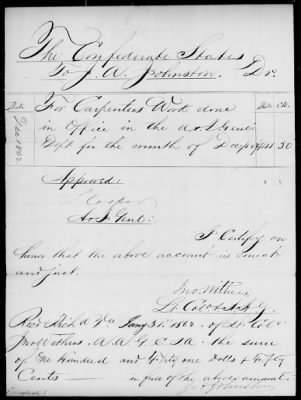 The Confederate States
To J. W. Johnston. Dr.
Date
Dolls Cts.
Dec 1862
For Carpenters Work done
in Office in the
Dept for the month of 50
Approved:
S Cooper
A & I Genl:
I Certify on
honor that the above account is correct
and just.
Jno. Withers
Lt Col &
Recd Richd Va Jany 31st of Lt Col
Jno Withers, A. A. G. C.S.A. the sum
of One Hundred and Forty one Dolls & Fifty
Cents — in full of the above amount.
J. W. Johnston